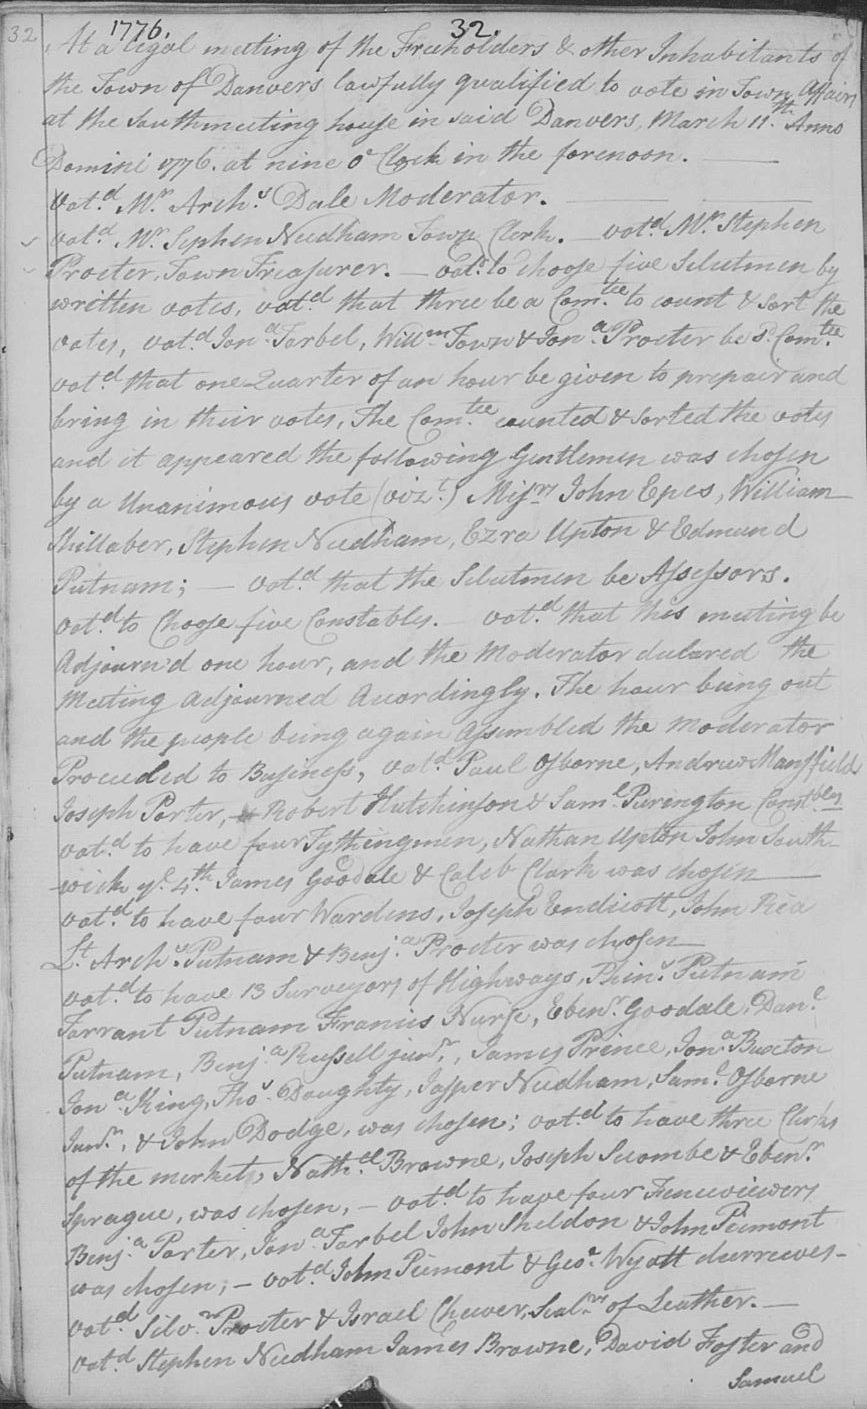 32
1776.
32.
At a legal meeting of the Freeholders & other Inhabitants of
the Town of Danvers lawfully qualified to vote in Town Affairs
at the Southmeeting house in said Danvers, March 11.th Anno
Domini 1776. at nine o'Clock in the forenoon.
Vot.d Mr. Arch.s Dale Moderator.
vot.d Mr. Sephen Needham Town Clerk. — vot.d Mr. Stephen
Procter, Town Treasurer. — vot.d to choose five Selectmen by
written votes, vot.d that three be a Com.tee to count & sort the
votes, vot.d Jon.a Tarbel, Will.m Town & Jon.a Procter be s.d Com.tee
vot.d that one Quarter of an hour be given to prepair and
bring in their votes, The Com.tee counted & sorted the votes
and it appeared the following Gentlemen was chosen
by a Unanimous vote (viz.t) Miss.rs John Epes, William
Shillaber, Stephen Needham, Ezra Upton & Edmund
Putnam; — vot.d that the Selectmen be Assessors.
vot.d to Choose five Constables. — vot.d that this meeting be
Adjourn'd one hour, and the Moderator declared the
Meeting adjourned Accordingly. The hour being out
and the people being again Assembled the Moderator
Proceeded to Business, vot.d Paul Osborne, Andrew Mansfield
Joseph Porter, Robert Hutchinson & Sam.l Purington Const.bles
vot.d to have four Tythingmen, Nathan Upton John South-
wick ye 4.th James Goodale & Caleb Clark was chosen
vot.d to have four Wardens, Joseph Endicott, John Rea
Lt. Arch.s Putnam & Benj.a Procter was chosen
vot.d to have 13 Surveyors of Highways, Phin.s Putnam
Tarrant Putnam Francis Nurse, Eben.r Goodale, Dan.l
Putnam, Benj.a Russell jun.r, James Prince, Jon.a Buxton
Jon.a King, Tho.s Daughty, Jasper Needham, Sam.l Osborne
Jun.r, & John Dodge, was chosen; vot.d to have three Clerks
of the market, Nath.el Browne, Joseph Seccombe & Eben.r
Sprague, was chosen, — vot.d to have four Fenceviewers
Benj.a Porter, Jon.a Tarbel John Sheldon & John Piemont
was chosen; — vot.d John Piemont & Geo.e Wyatt deerreeves-
vot.d Silv.r Procter & Israel Cheever, Seal.rs of Leather. —
vot.d Stephen Needham James Browne, David Foster and
Samuel